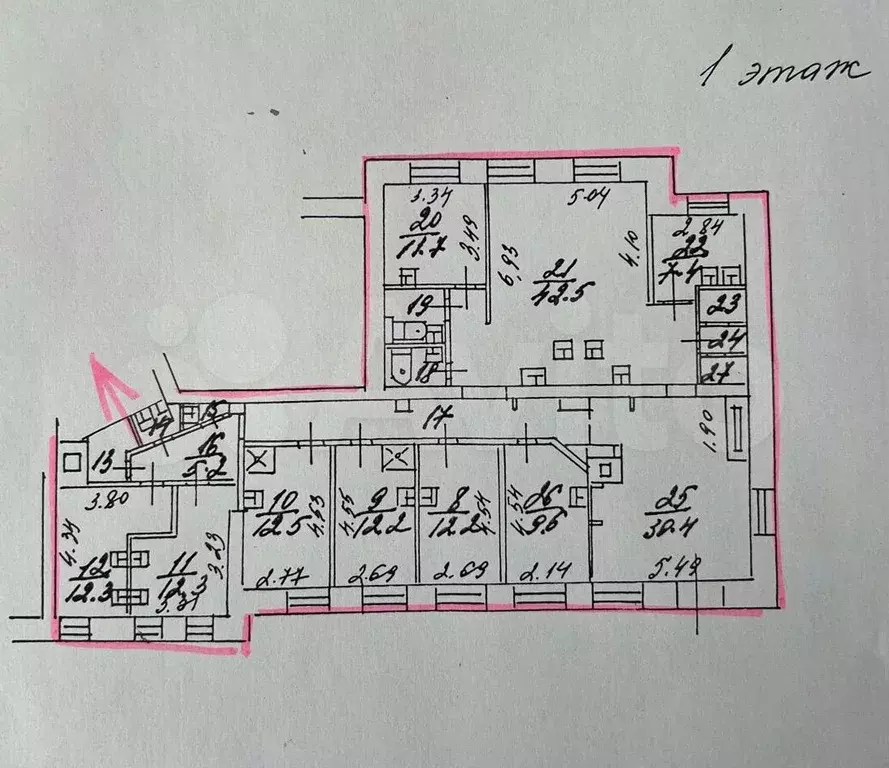 1 этаж
3.34
5.04
20
11.7
3.49
6.93
21
42.5
4.10
2.84
22
7.4
19
23
24
18
27
17
1.90
15
14
16
5.2
13
3.80
4.34
12
12.3
11
12.3
3.23
10
12.5
4.53
2.77
4.55
9
12.2
2.69
8
12.2
4.54
2.69
4.54
26
9.6
2.14
25
30.4
5.49